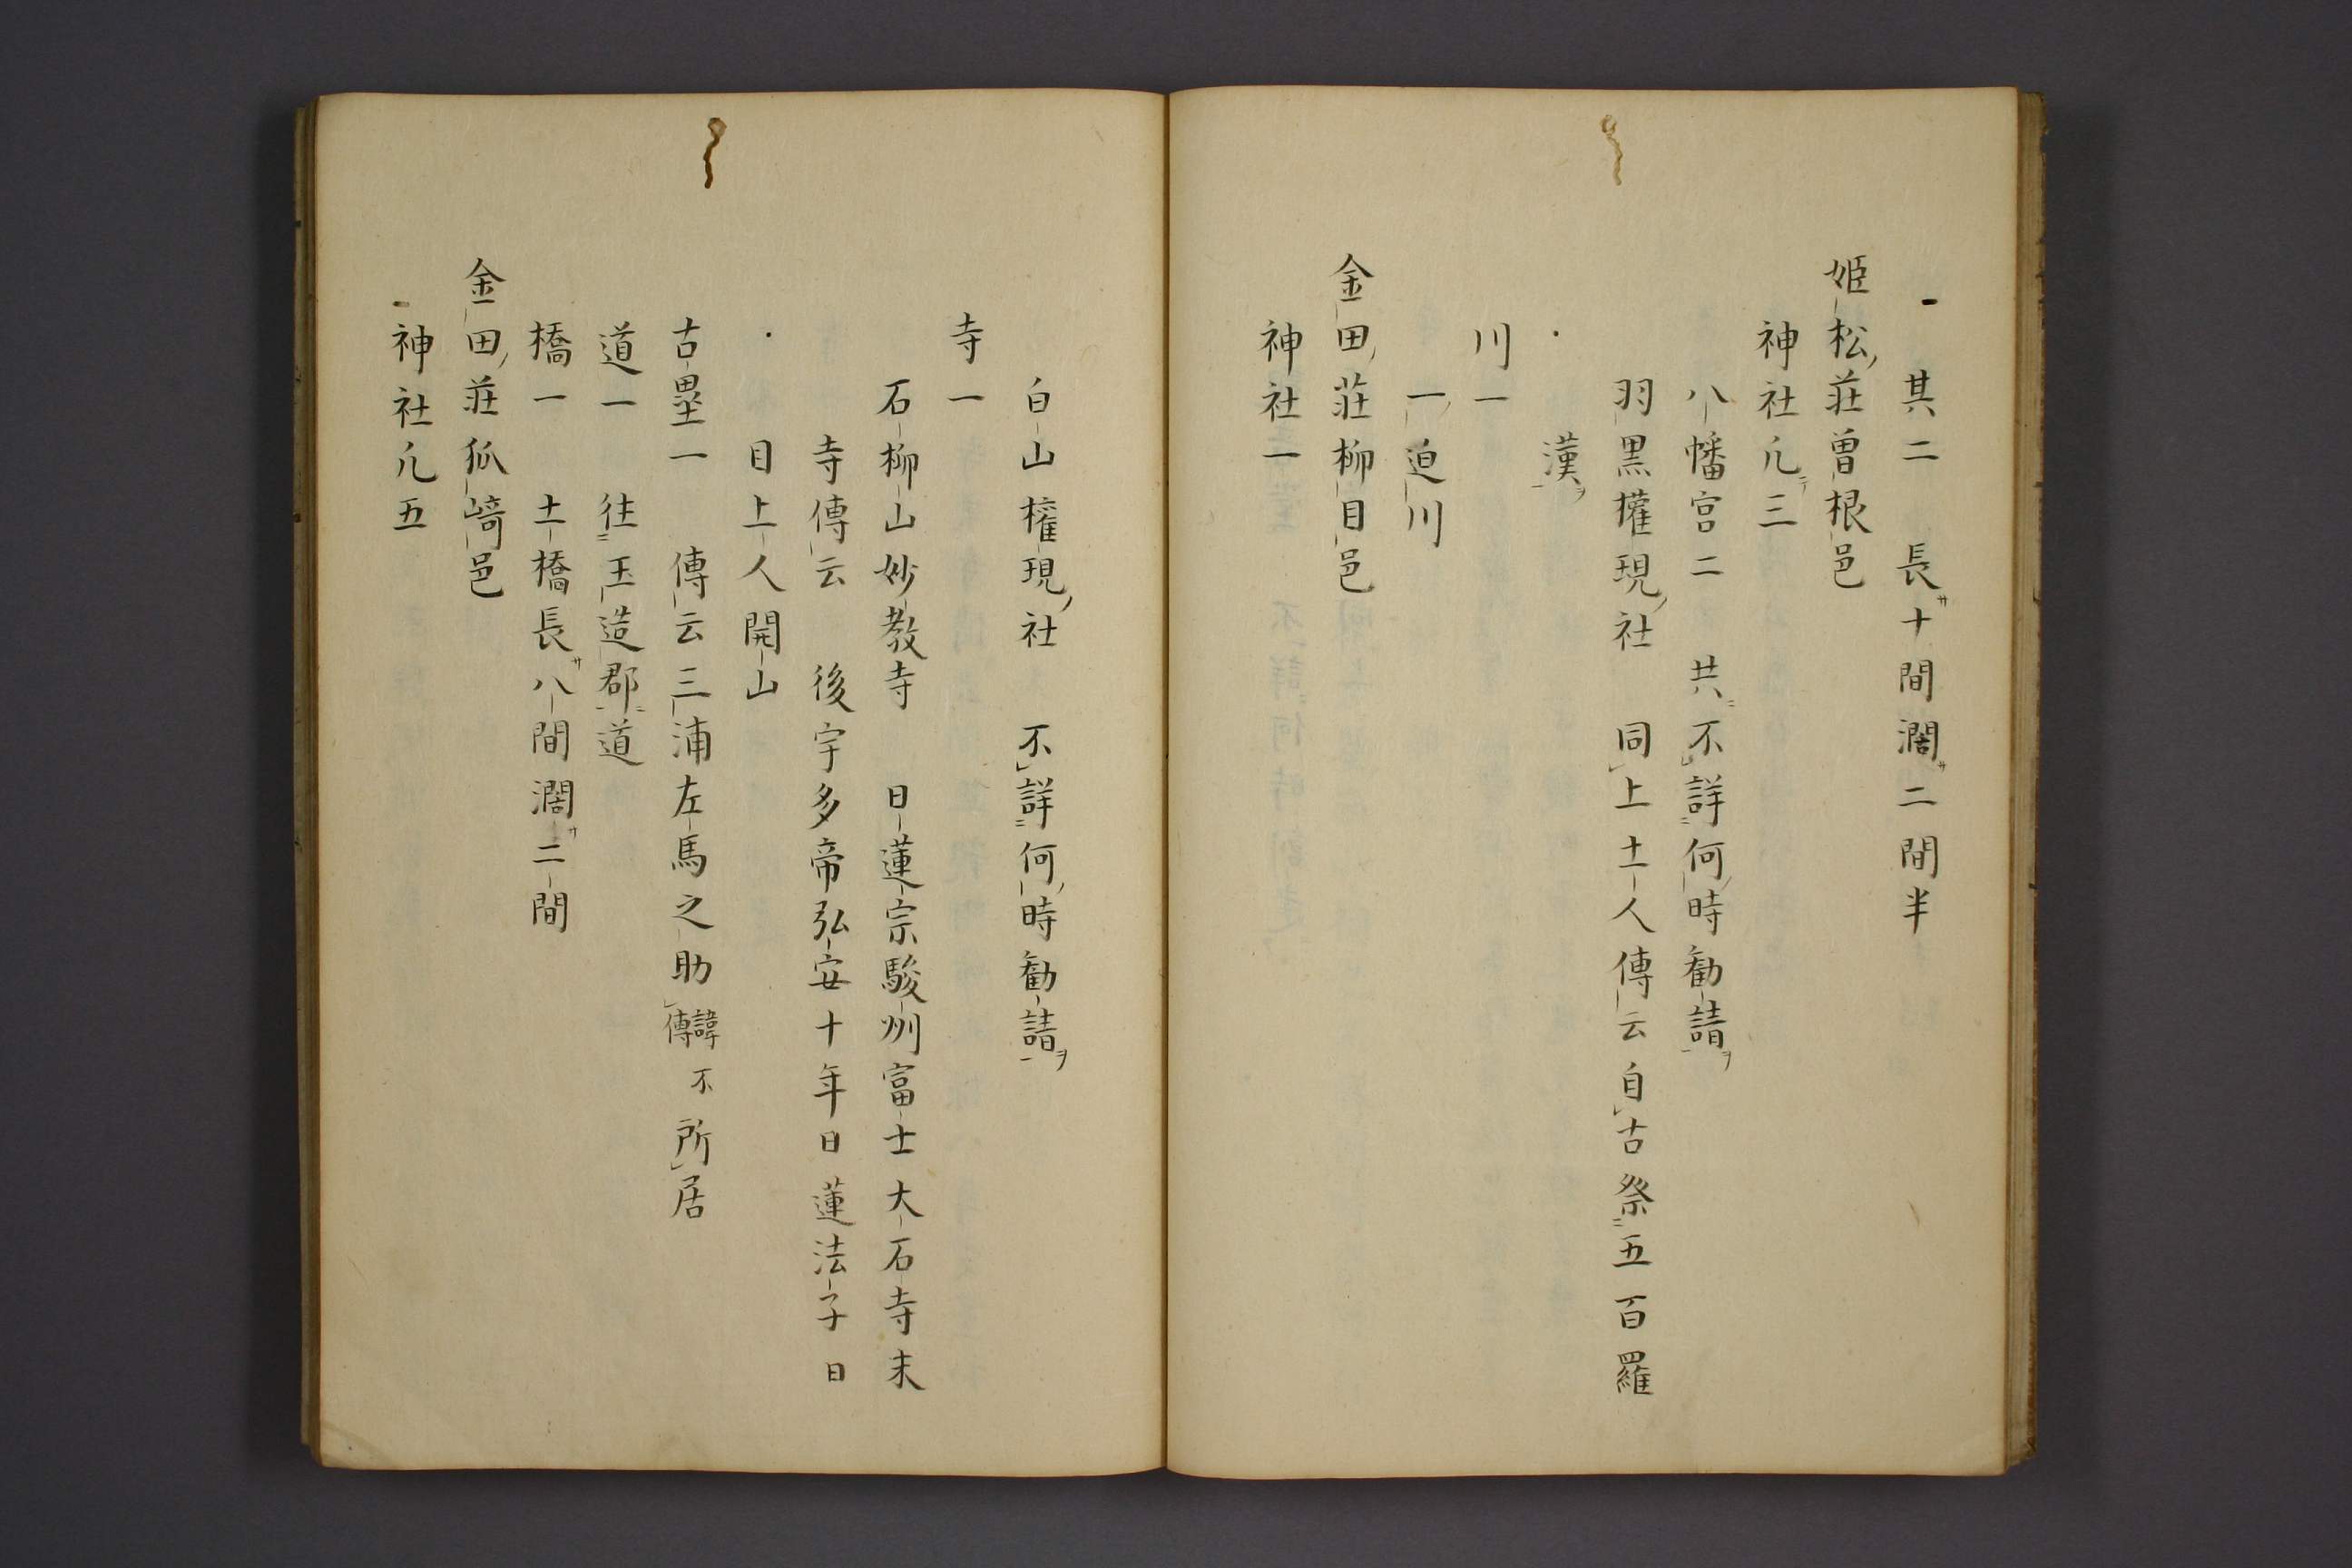 其二　長サ十間濶サ二間半
姫松ノ荘曽根邑
神社凢テ三
八幡宮二　共ニ不詳何ノ時勧請ヲ
羽黒權現ノ社　同上土人傳云自古祭五百羅
漢ヲ
川一
一ノ迫川
金田ノ荘柳目邑
神社一
白山權現ノ社　不詳何ノ時勧請ヲ
寺一
石柳山妙教寺　日蓮宗駿州富士大石寺末
寺傳云　後宇多帝弘安十年日蓮法子日
目上人開山
古壘一　傳云三浦左馬之助諱不傳所居
道一　往玉造郡道
橋一　土橋長サ八間濶サ二間
金田ノ荘狐﨑邑
神社凢五